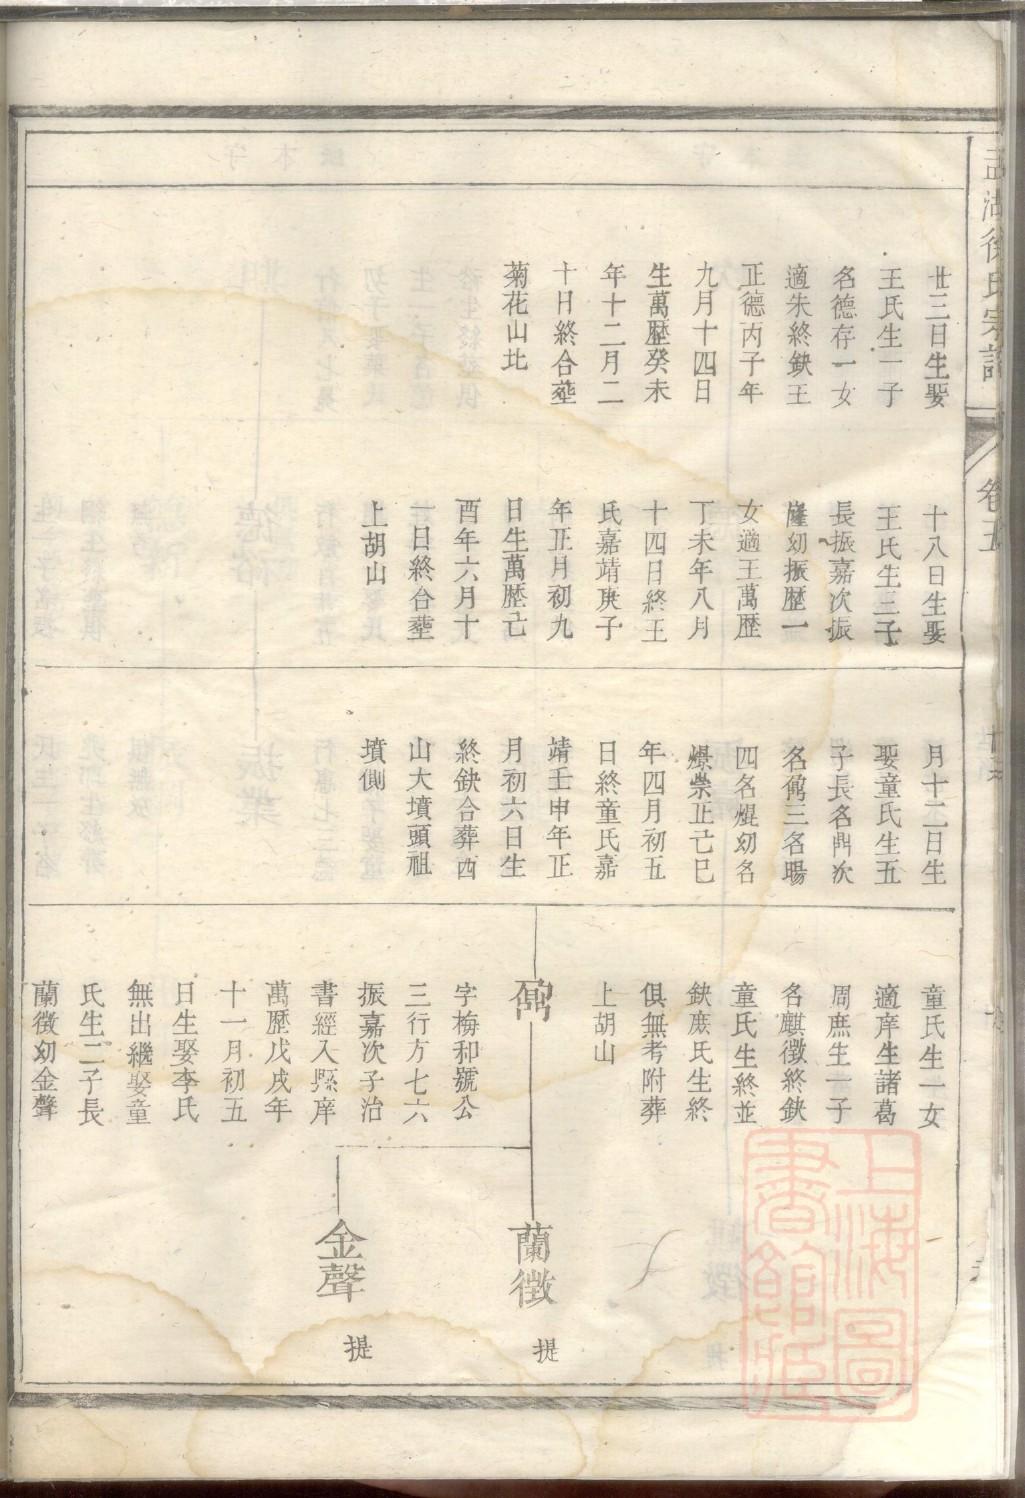 孟湖徐氏宗譜
卷五
廿三日生娶
王氏生一子
名德存一女
適朱終缺王
正德丙子年
九月十四日
生萬歷癸未
年十二月二
十日終合塟
菊花山北
十八日生娶
王氏生三子
長振嘉次振
隆幼振歷一
女適王萬歷
丁未年八月
十四日終王
氏嘉靖庚子
年正月初九
日生萬歷己
酉年六月十
一日終合塟
上胡山
月十二日生
娶童氏生五
子長名鼎次
名鼐三名暘
四名焜幼名
爆崇正己巳
年四月初五
日終童氏嘉
靖壬申年正
月初六日生
終缺合葬西
山大墳頭祖
墳側
童氏生一女
適庠生諸葛
周庶生一子
名麒徵終缺
童氏生終並
缺庶氏生終
俱無考附葬
上胡山
鼐
字梅和號公
三行方七六
振嘉次子治
書經入縣庠
萬歷戊戌年
十一月初五
日生娶李氏
無出繼娶童
氏生二子長
蘭徵幼金聲
蘭徵
提
金聲
提
上海圖
書館藏